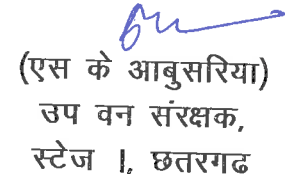 (एस के आबुसरिया)
उप वन संरक्षक,
स्टेज I, छतरगढ